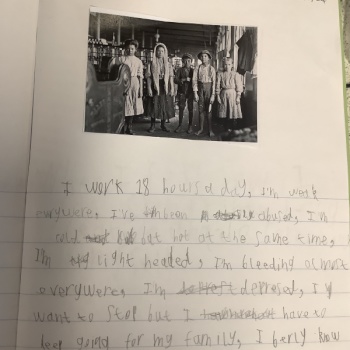 I work 18 hours a day, I'm weak
everywere, I've been abused, I'm
cold but hot at the same time,
I'm light headed, I'm bleeding almost
everywere, I'm depresed, I
want to stop but I have to
keep going for my family, I berly know